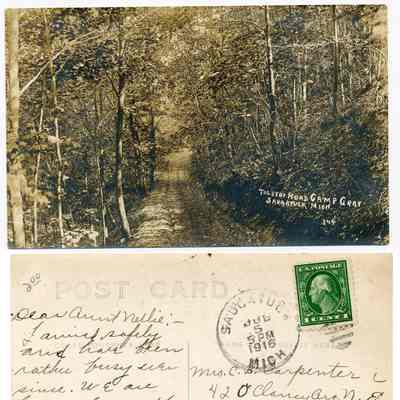 TOLSTOI ROAD CAMP GRAY
SAUGATUCK MICH.
244
200
POST CARD
Dear Aunt Nellie;-
I arrived safely
and have been
rather busy ever
since. We are
SAUGATUCK
JUL
5
5 PM
1916
MICH
U.S. POSTAGE
1 CENT 1
Mrs. C. B. Carpenter
420 Clancy Ave N.E